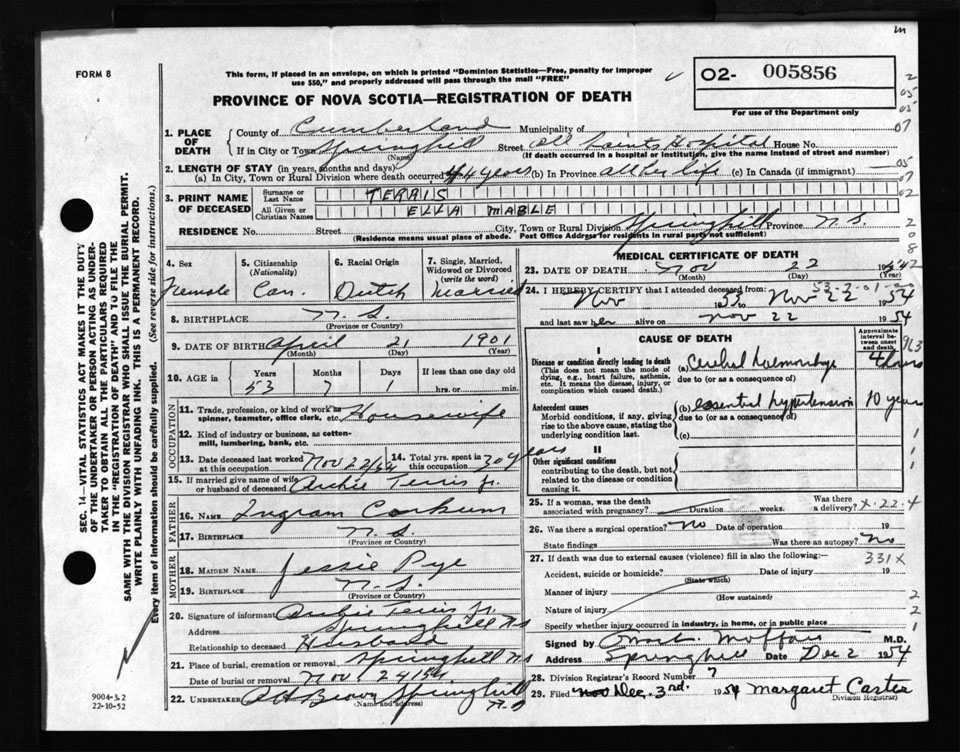 m
FORM 8
This form, if placed in an envelope, on which is printed "Dominion Statistics—Free, penalty for improper
use $50," and properly addressed will pass through the mail "FREE"
O2- 005856
For use of the Department only
PROVINCE OF NOVA SCOTIA—REGISTRATION OF DEATH
2
05
05
07
05
07
02
2
0
8
2
1. PLACE OF DEATH
County of Cumberland Municipality of
If in City or Town Springhill Street All Saints Hospital House No.
(Name) (If death occurred in a hospital or institution, give the name instead of street and number)
2. LENGTH OF STAY (in years, months and days)
(a) In City, Town or Rural Division where death occurred 44 years (b) In Province all her life (c) In Canada (if immigrant)
3. PRINT NAME OF DECEASED
Surname or Last Name TERRIS
All Given or Christian Names ELLA MABLE
RESIDENCE No. Street City, Town or Rural Division Springhill Province N.S.
(Residence means usual place of abode. Post Office Address for residents in rural party not sufficient)
4. Sex Female
5. Citizenship (Nationality) Can.
6. Racial Origin Dutch
7. Single, Married, Widowed or Divorced (write the word) Married
8. BIRTHPLACE N.S.
(Province or Country)
9. DATE OF BIRTH April 21 1901
(Month) (Day) (Year)
10. AGE in Years Months Days If less than one day old
53 7 1 hrs. or min.
OCCUPATION
11. Trade, profession, or kind of work as spinner, teamster, office clerk, etc. Housewife
12. Kind of industry or business, as cotton-mill, lumbering, bank, etc.
13. Date deceased last worked at this occupation Nov 22/54
14. Total yrs. spent in this occupation 30 years
15. If married give name of wife or husband of deceased Archie Terris Jr.
FATHER
16. NAME Ingram Corkum
17. BIRTHPLACE N.S.
(Province or Country)
MOTHER
18. MAIDEN NAME Jessie Pye
19. BIRTHPLACE N.S.
(Province or Country)
20. Signature of informant Archie Terris Jr.
Address Springhill N.S
Relationship to deceased Husband
21. Place of burial, cremation or removal Springhill N.S
Date of burial or removal Nov 24 1954
22. UNDERTAKER A H Brown Springhill N.S
(Name and address)
MEDICAL CERTIFICATE OF DEATH
23. DATE OF DEATH Nov 22 19
(Month) (Day) (Year)
24. I HEREBY CERTIFY that I attended deceased from:
Nov 1953 Nov 22 1954
and last saw her alive on Nov 22 1954
CAUSE OF DEATH
Approximate interval between onset and death
I
Disease or condition directly leading to death
(This does not mean the mode of dying, e.g., heart failure, asthenia, etc. It means the disease, injury, or complication which caused death.)
(a) Cerebral haemorrhage 4 hours
due to (or as a consequence of)
Antecedent causes
Morbid conditions, if any, giving rise to the above cause, stating the underlying condition last.
(b) essential hypertension 10 years
due to (or as a consequence of)
(c)
II
Other significant conditions
contributing to the death, but not related to the disease or condition causing it.
25. If a woman, was the death associated with pregnancy? Duration weeks. Was there a delivery? X-22.4
26. Was there a surgical operation? No Date of operation 19
State findings Was there an autopsy? No
27. If death was due to external causes (violence) fill in also the following:—
331X
Accident, suicide or homicide? Date of injury 19
(State which)
Manner of injury
(How sustained)
Nature of injury
Specify whether injury occurred in industry, in home, or in public place
Signed by M.D.
Address Springhill Date Dec 2 1954
28. Division Registrar's Record Number 7
29. Filed Nov Dec. 3rd. 1954 Margaret Carter
Division Registrar)
SEC. 14—VITAL STATISTICS ACT MAKES IT THE DUTY
OF THE UNDERTAKER OR PERSON ACTING AS UNDER-
TAKER TO OBTAIN ALL THE PARTICULARS REQUIRED
IN THE "REGISTRATION OF DEATH" AND TO FILE THE
SAME WITH THE DIVISION REGISTRAR WHO SHALL ISSUE THE BURIAL PERMIT.
WRITE PLAINLY WITH UNFADING INK. THIS IS A PERMANENT RECORD.
Every item of information should be carefully supplied. (See reverse side for instructions.)
9004-3.2
22-10-52